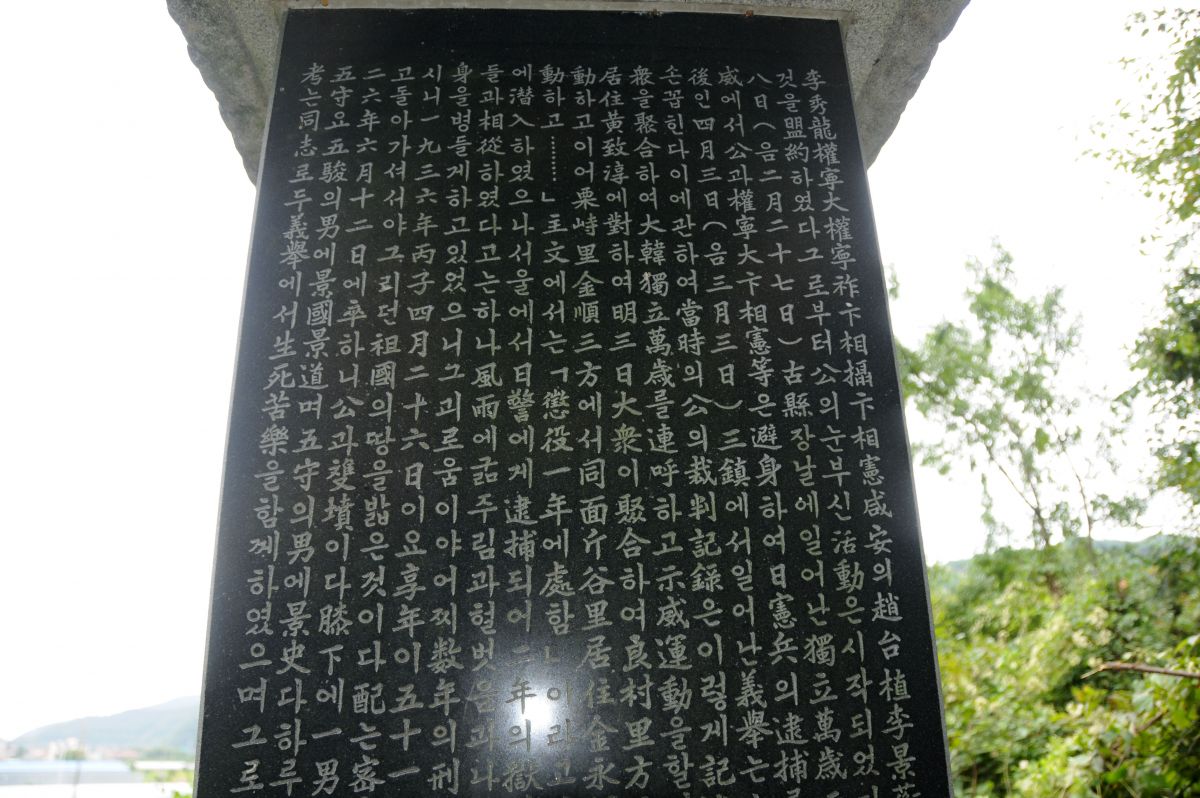 李秀龍權寧大權寧祚卞相攝卞相憲咸安의趙台植李景
것을盟約하였다그로부터公의눈부신活動은시작되었
八日(음二月二十七日)古縣장날에일어난獨立萬歲
威에서公과權寧大卞相憲等은避身하여日憲兵의逮捕
後인四月三日(음三月三日)三鎮에서일어난義擧는
손꼽힌다이에관하여當時의公의裁判記錄은이렇게記
衆을聚合하여大韓獨立萬歲를連呼하고示威運動을할
居住黃致淳에對하여明三日大衆이聚合하여良村里方
動하고이어栗峙里金順三方에서同面斤谷里居住金永
動하고………」主文에서는「懲役一年에處함」이라고
에潜入하였으나서울에서日警에게逮捕되어二年의獄
들과相從하였다고는하나風雨에굶주림과헐벗음과나
身을병들게하고있었으니그괴로움이야어찌数年의刑
시니一九三六年丙子四月二十六日이요享年이五十一
고돌아가셔서야그리던祖國의땅을밟은것이다配는密
二六年六月十二日에卒하니公과雙墳이다膝下에一男
五守요五駿의男에景國景道며五守의男에景史다하루
考는同志로두義擧에서生死苦樂을함께하였으며그로